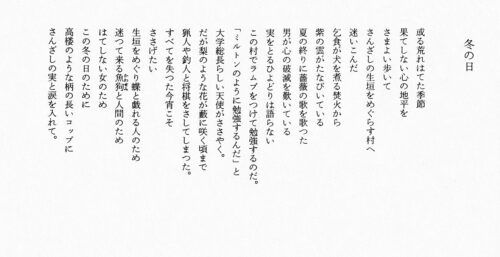 冬の日
或る荒れはてた季節
果てしない心の地平を
さまよい歩いて
さんざしの生垣をめぐらす村へ
迷いこんだ
乞食が犬を煮る焚火から
紫の雲がたなびいている
夏の終りに薔薇の歌を歌つた
男が心の破滅を歎いている
実をとるひよどりは語らない
この村でラムプをつけて勉強するのだ。
「ミルトンのように勉強するんだ」と
大学総長らしい天使がささやく。
だが梨のような花が藪に咲く頃まで
猟人や釣人と将棋をさしてしまつた。
すべてを失つた今宵こそ
ささげたい
生垣をめぐり蝶と戯れる人のため
迷つて来る魚狗と人間のため
はてしない女のため
この冬の日のために
高楼のような柄の長いコップに
さんざしの実と涙を入れて。